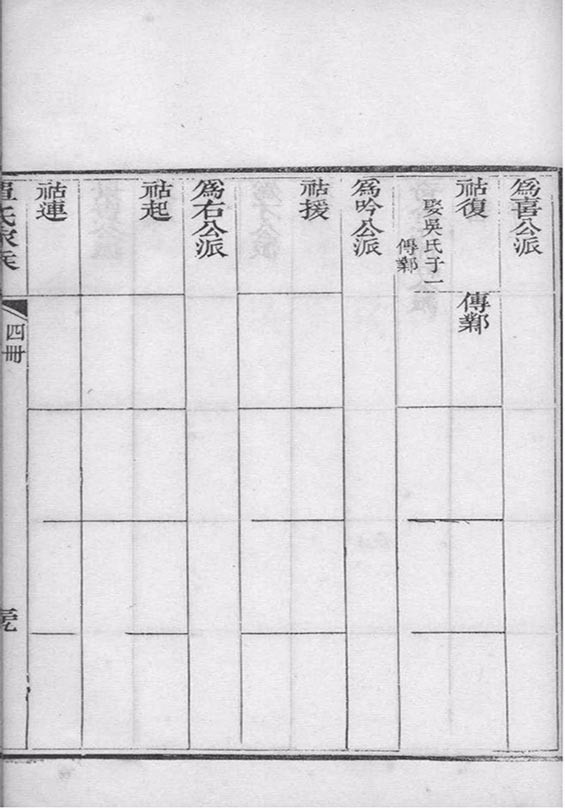 為喜公派
祜復
娶吳氏子一
傳鄴
傳鄴
為吟公派
祜援
為右公派
祜起
祜連
氏家乘
四冊